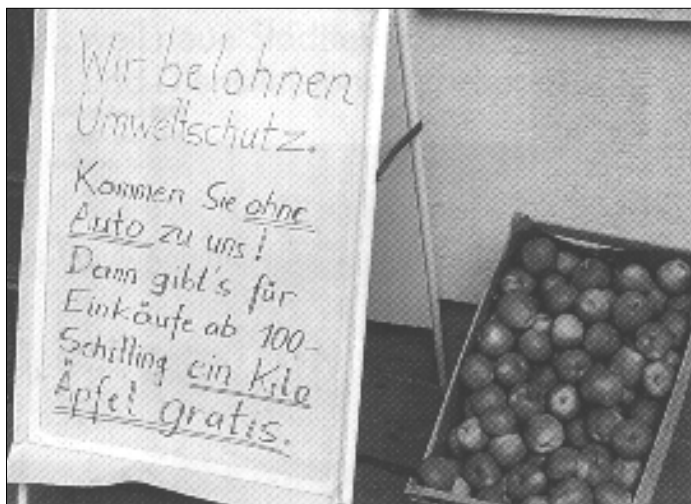 Wir belohnen
Umweltschutz.
Kommen Sie ohne
Auto zu uns!
Dann gibt's für
Einkäufe ab 100-
Schilling ein Kilo
Äpfel gratis.